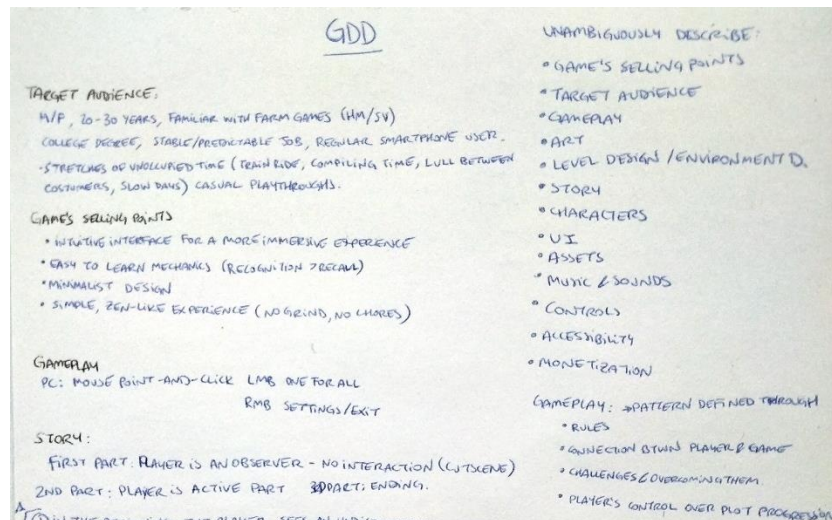 GDD
TARGET AUDIENCE:
M/F, 20-30 YEARS, FAMILIAR WITH FARM GAMES (HM/SV)
COLLEGE DEGREE, STABLE/PREDICTABLE JOB, REGULAR SMARTPHONE USER.
-STRETCHES OF UNOCCUPIED TIME (TRAIN RIDE, COMPILING TIME, LULL BETWEEN
COSTUMERS, SLOW DAYS) CASUAL PLAYTHROUGHS.
GAME'S SELLING POINTS
• INTUITIVE INTERFACE FOR A MORE IMMERSIVE EXPERIENCE
• EASY TO LEARN MECHANICS (RECOGNITION > RECALL)
• MINIMALIST DESIGN
• SIMPLE, ZEN-LIKE EXPERIENCE (NO GRIND, NO CHORES)
GAMEPLAY
PC: MOUSE POINT-AND-CLICK LMB ONE FOR ALL
RMB SETTINGS/EXIT
STORY:
FIRST PART: PLAYER IS AN OBSERVER - NO INTERACTION (CUTSCENE)
2ND PART: PLAYER IS ACTIVE PART 3D PART: ENDING.
THE PLAYER SEES AN
UNAMBIGUOUSLY DESCRIBE:
• GAME'S SELLING POINTS
• TARGET AUDIENCE
• GAMEPLAY
• ART
• LEVEL DESIGN / ENVIRONMENT D.
• STORY
• CHARACTERS
• UI
• ASSETS
• MUSIC & SOUNDS
• CONTROLS
• ACCESSIBILITY
• MONETIZATION
GAMEPLAY: → PATTERN DEFINED THROUGH
• RULES
• CONNECTION BTWN PLAYER & GAME
• CHALLENGES & OVERCOMING THEM
• PLAYER'S CONTROL OVER PLOT PROGRESSION